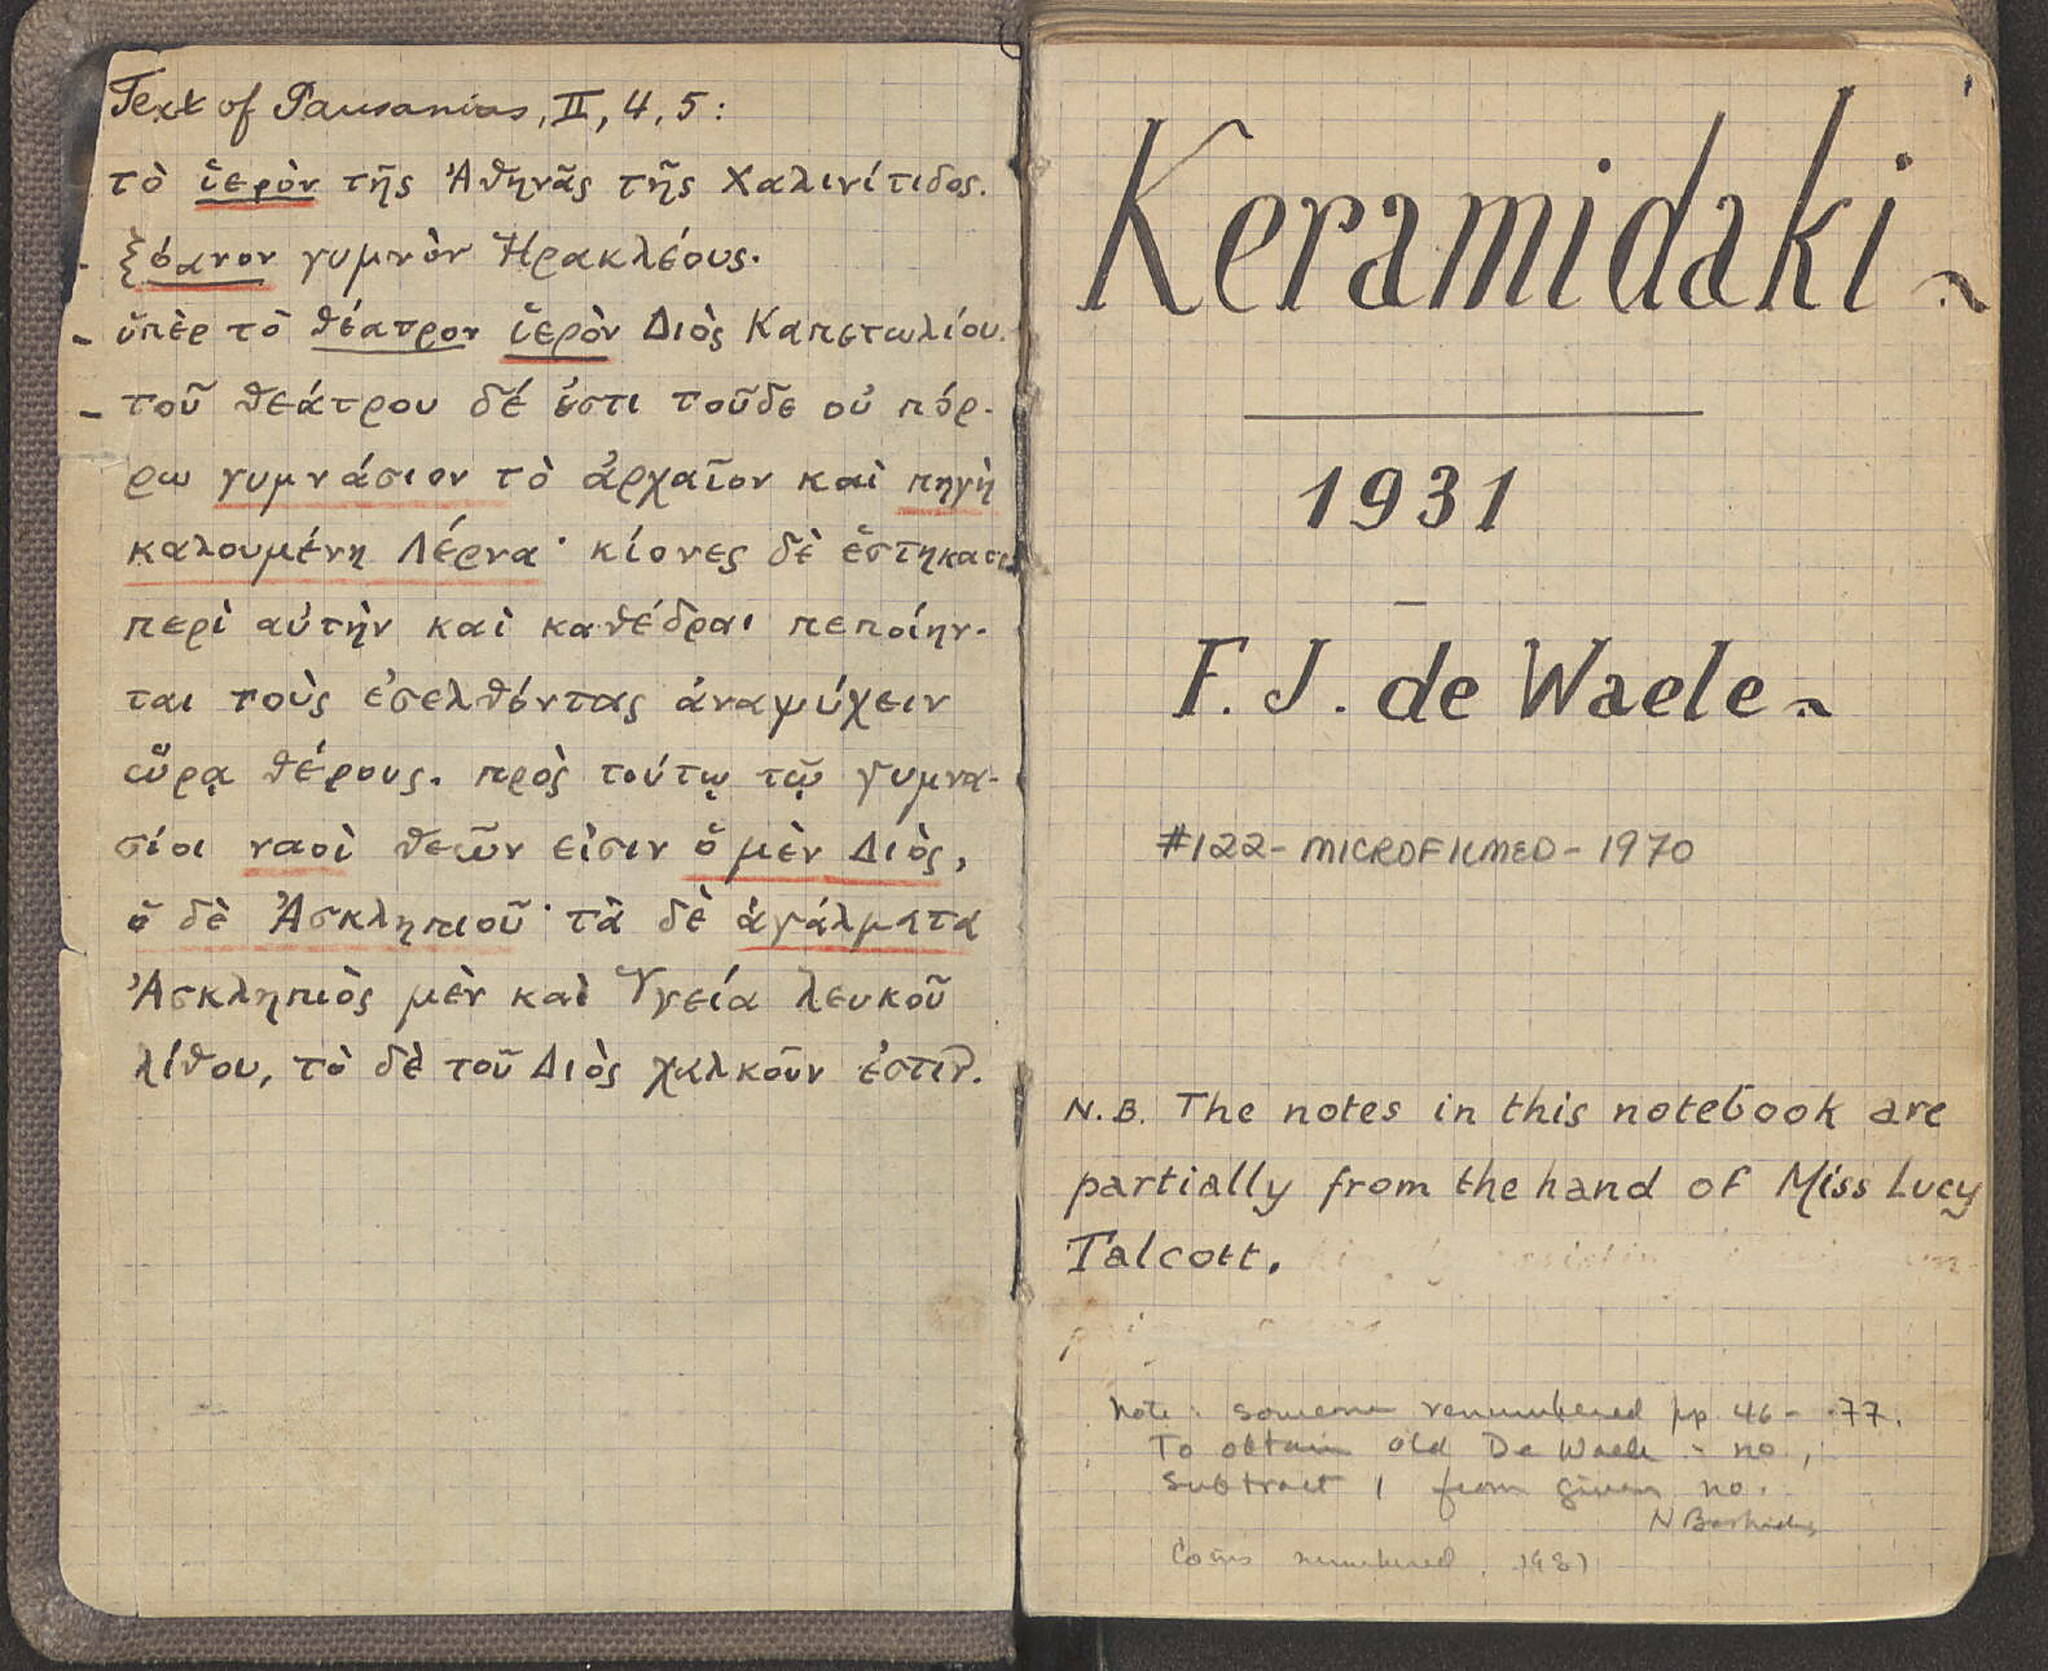 Text of Pausanias, II, 4, 5:
τὸ ἱερὸν τῆς Ἀθηνᾶς τῆς Χαλινίτιδος.
- ξόανον γυμνὸν Ἡρακλέους.
- ὑπὲρ τὸ θέατρον ἱερὸν Διὸς Καπετωλίου.
- τοῦ θεάτρου δέ ἐστι τοῦδε οὐ πόρ-
ρω γυμνάσιον τὸ ἀρχαῖον καὶ πηγὴ
καλουμένη Λέρνα· κίονες δὲ ἑστήκασι
περὶ αὐτὴν καὶ καθέδραι πεποίην-
ται τοὺς ἐσελθόντας ἀναψύχειν
ὥρᾳ θέρους. πρὸς τούτῳ τῷ γυμνα-
σίοι ναοὶ θεῶν εἰσιν ὁ μὲν Διὸς,
ὁ δὲ Ἀσκληπιοῦ· τὰ δὲ ἀγάλματα
Ἀσκληπιὸς μὲν καὶ Ὑγεία λευκοῦ
λίθου, τὸ δὲ τοῦ Διὸς χαλκοῦν ἐστιν.
1
Keramidaki
1931
F. J. de Waele
#122 - MICROFILMED - 1970
N.B. The notes in this notebook are
partially from the hand of Miss Lucy
Talcott.
Note: Someone renumbered pp 46 - 77.
To obtain old De Waele - no.,
subtract 1 from given no.
N Bookidis
Coins renumbered. 1981